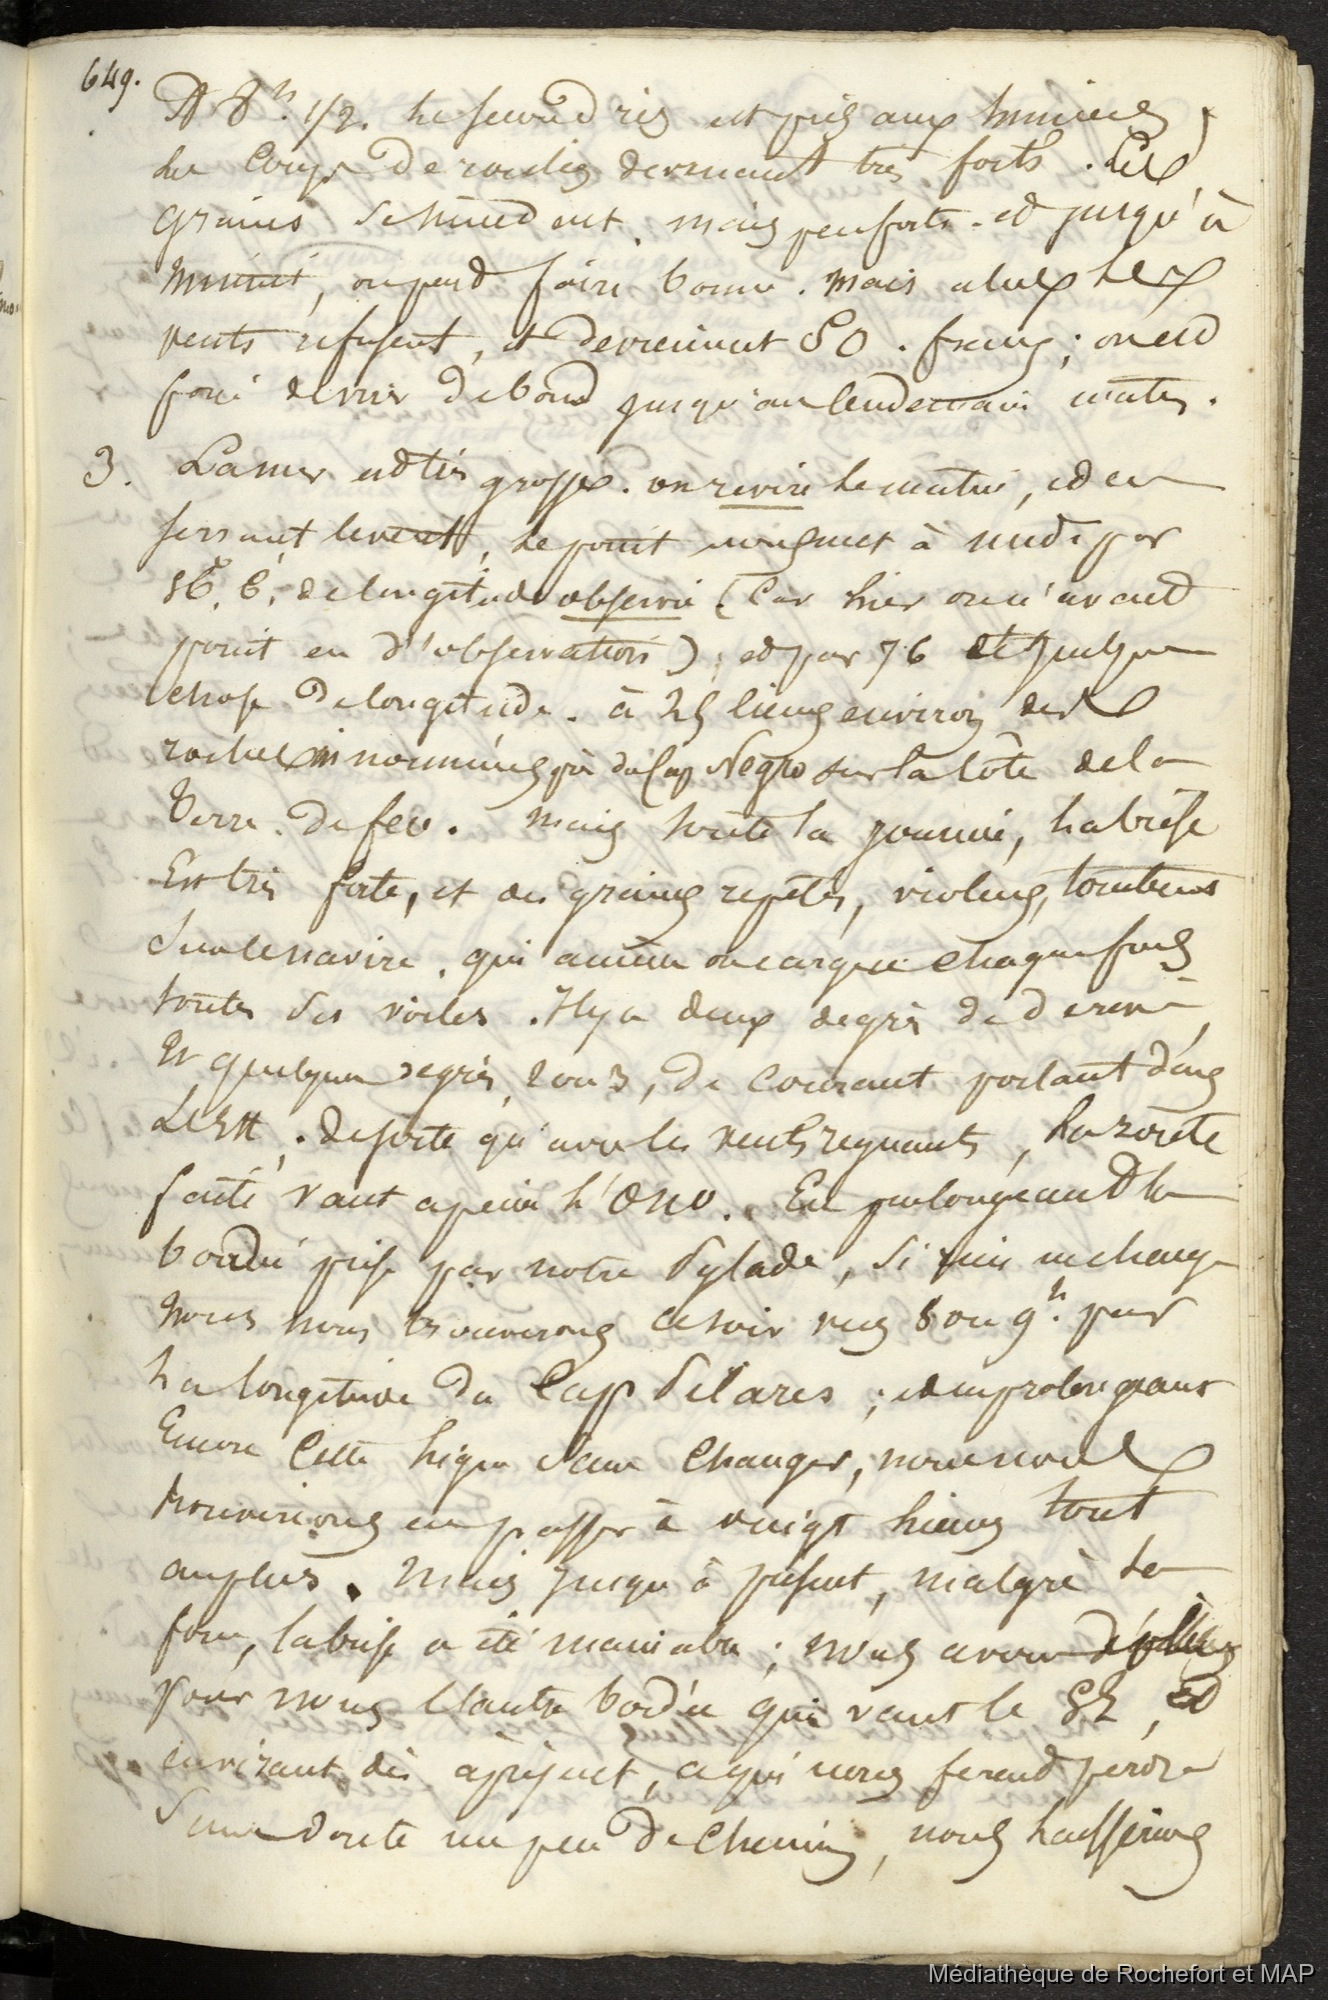 649.
A 8h. 1/2. le second ris est pris aux huniers,
les coups de roulis deviennent très forts. Les
grains se succèdent, mais peu forts. et jusqu'à
minuit, on peut faire bonne. mais alors les
vents refusent, et deviennent SO. francs; on est
forcé de virer de bord jusqu'au lendemain matin.
3. La mer est très grosse. on revire le matin, et en
serrant le vent, le point nous met à midi par
56°. 6. de longitude observée (car hier on n'avait
point eu d'observation); et par 76 et quelque
chose de longitude. à 25 lieues environ des
roches innommées près du Cap Negro sur la côte de la
Terre de feu. mais toute la journée, la brise
Est très forte, et des grains répétés, violens, tombent
sur le navire. qui amène ou cargue chaque fois
toutes ses voiles. Il y a deux degrés de dérive
Et quelques degrés, 2 ou 3, de courant portant dans
L'Est. de sorte qu'avec les vents régnants, la route
faite vaut à peine l'ONO. En prolongeant la
bordée prise par notre Pylade, si rien ne change
nous nous trouverons ce soir vers 8 ou 9h. par
la longitude du Cap Pilares; et en prolongeant
Encore cette ligne sans changer, nous nous
trouverions en passer à vingt lieues tout
au plus. Mais jusqu'à présent, malgré sa
force, la brise a été maniable; nous avons
pour nous l'autre bordée qui vaut le SE, et
en virant dès à présent, ce qui nous ferait perdre
sans doute un peu de chemin, nous hausserions
Médiathèque de Rochefort et MAP